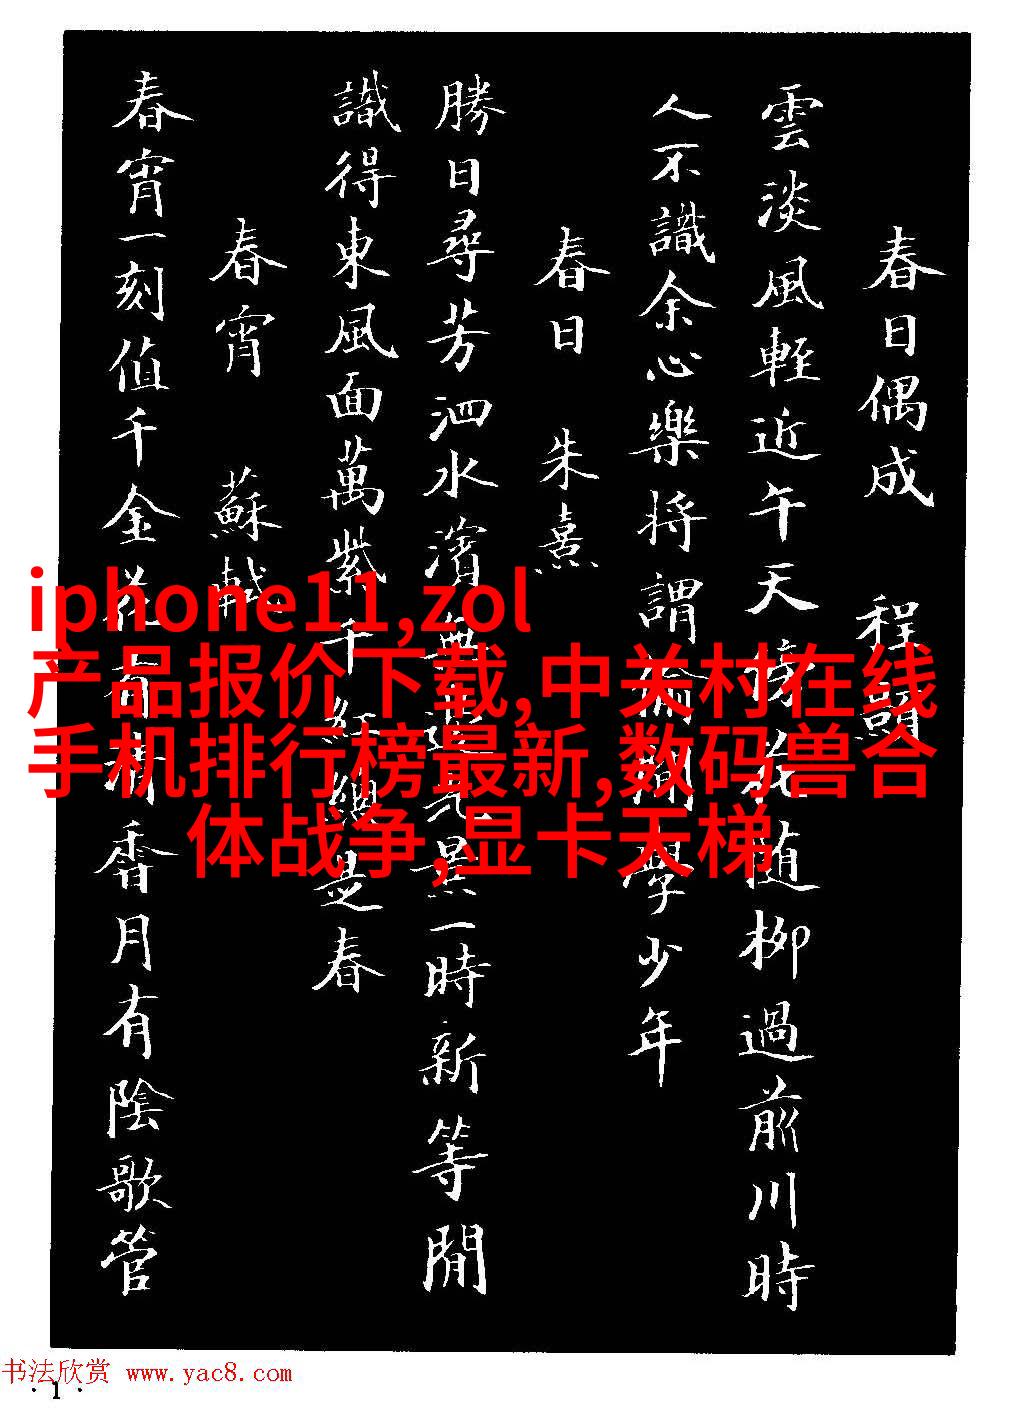 春日偶成 程顥
雲淡風輕近午天傍花随柳過前川時
人不識余心樂將謂偷閒學少年
春日 朱熹
勝日尋芳泗水濱無邊光景一時新等閒
識得東風面萬紫千紅總是春
春宵 蘇軾
春宵一刻值千金花有清香月有陰歌管
iphone11,zol
产品报价下载,中关村在线
手机排行榜最新,数码兽合
体战争,显卡天梯
书法欣赏 www.yac8.com
·1·